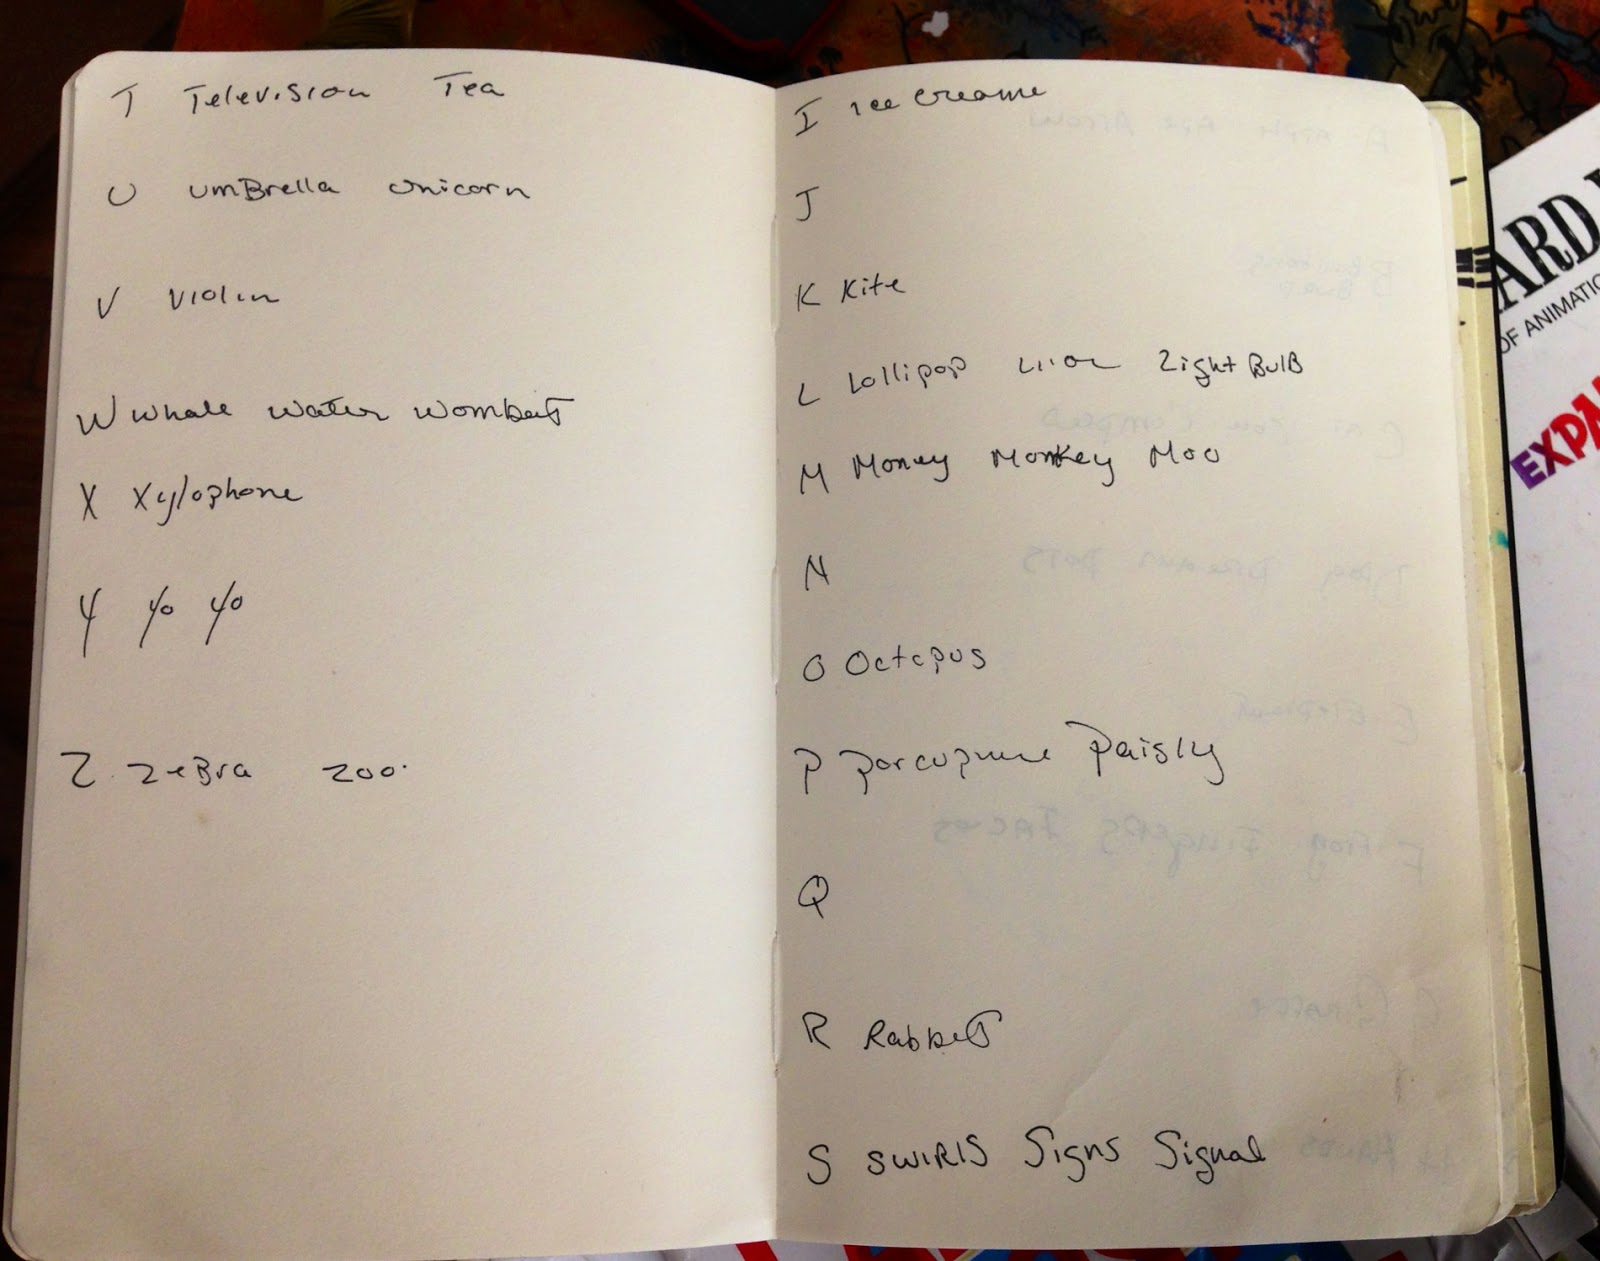 T Television Tea
U umBrella unicorn
V Violin
W whale water wombat
X Xylophone
Y yo yo
Z zeBra zoo.
I ice creame
J
K Kite
L Lollipop Lion LightBulB
M Money Monkey Moo
N
O Octopus
P porcupine Paisly
Q
R Rabbet
S SWIRlS Signs Signal
ARD
OF ANIMATIO
EXPA